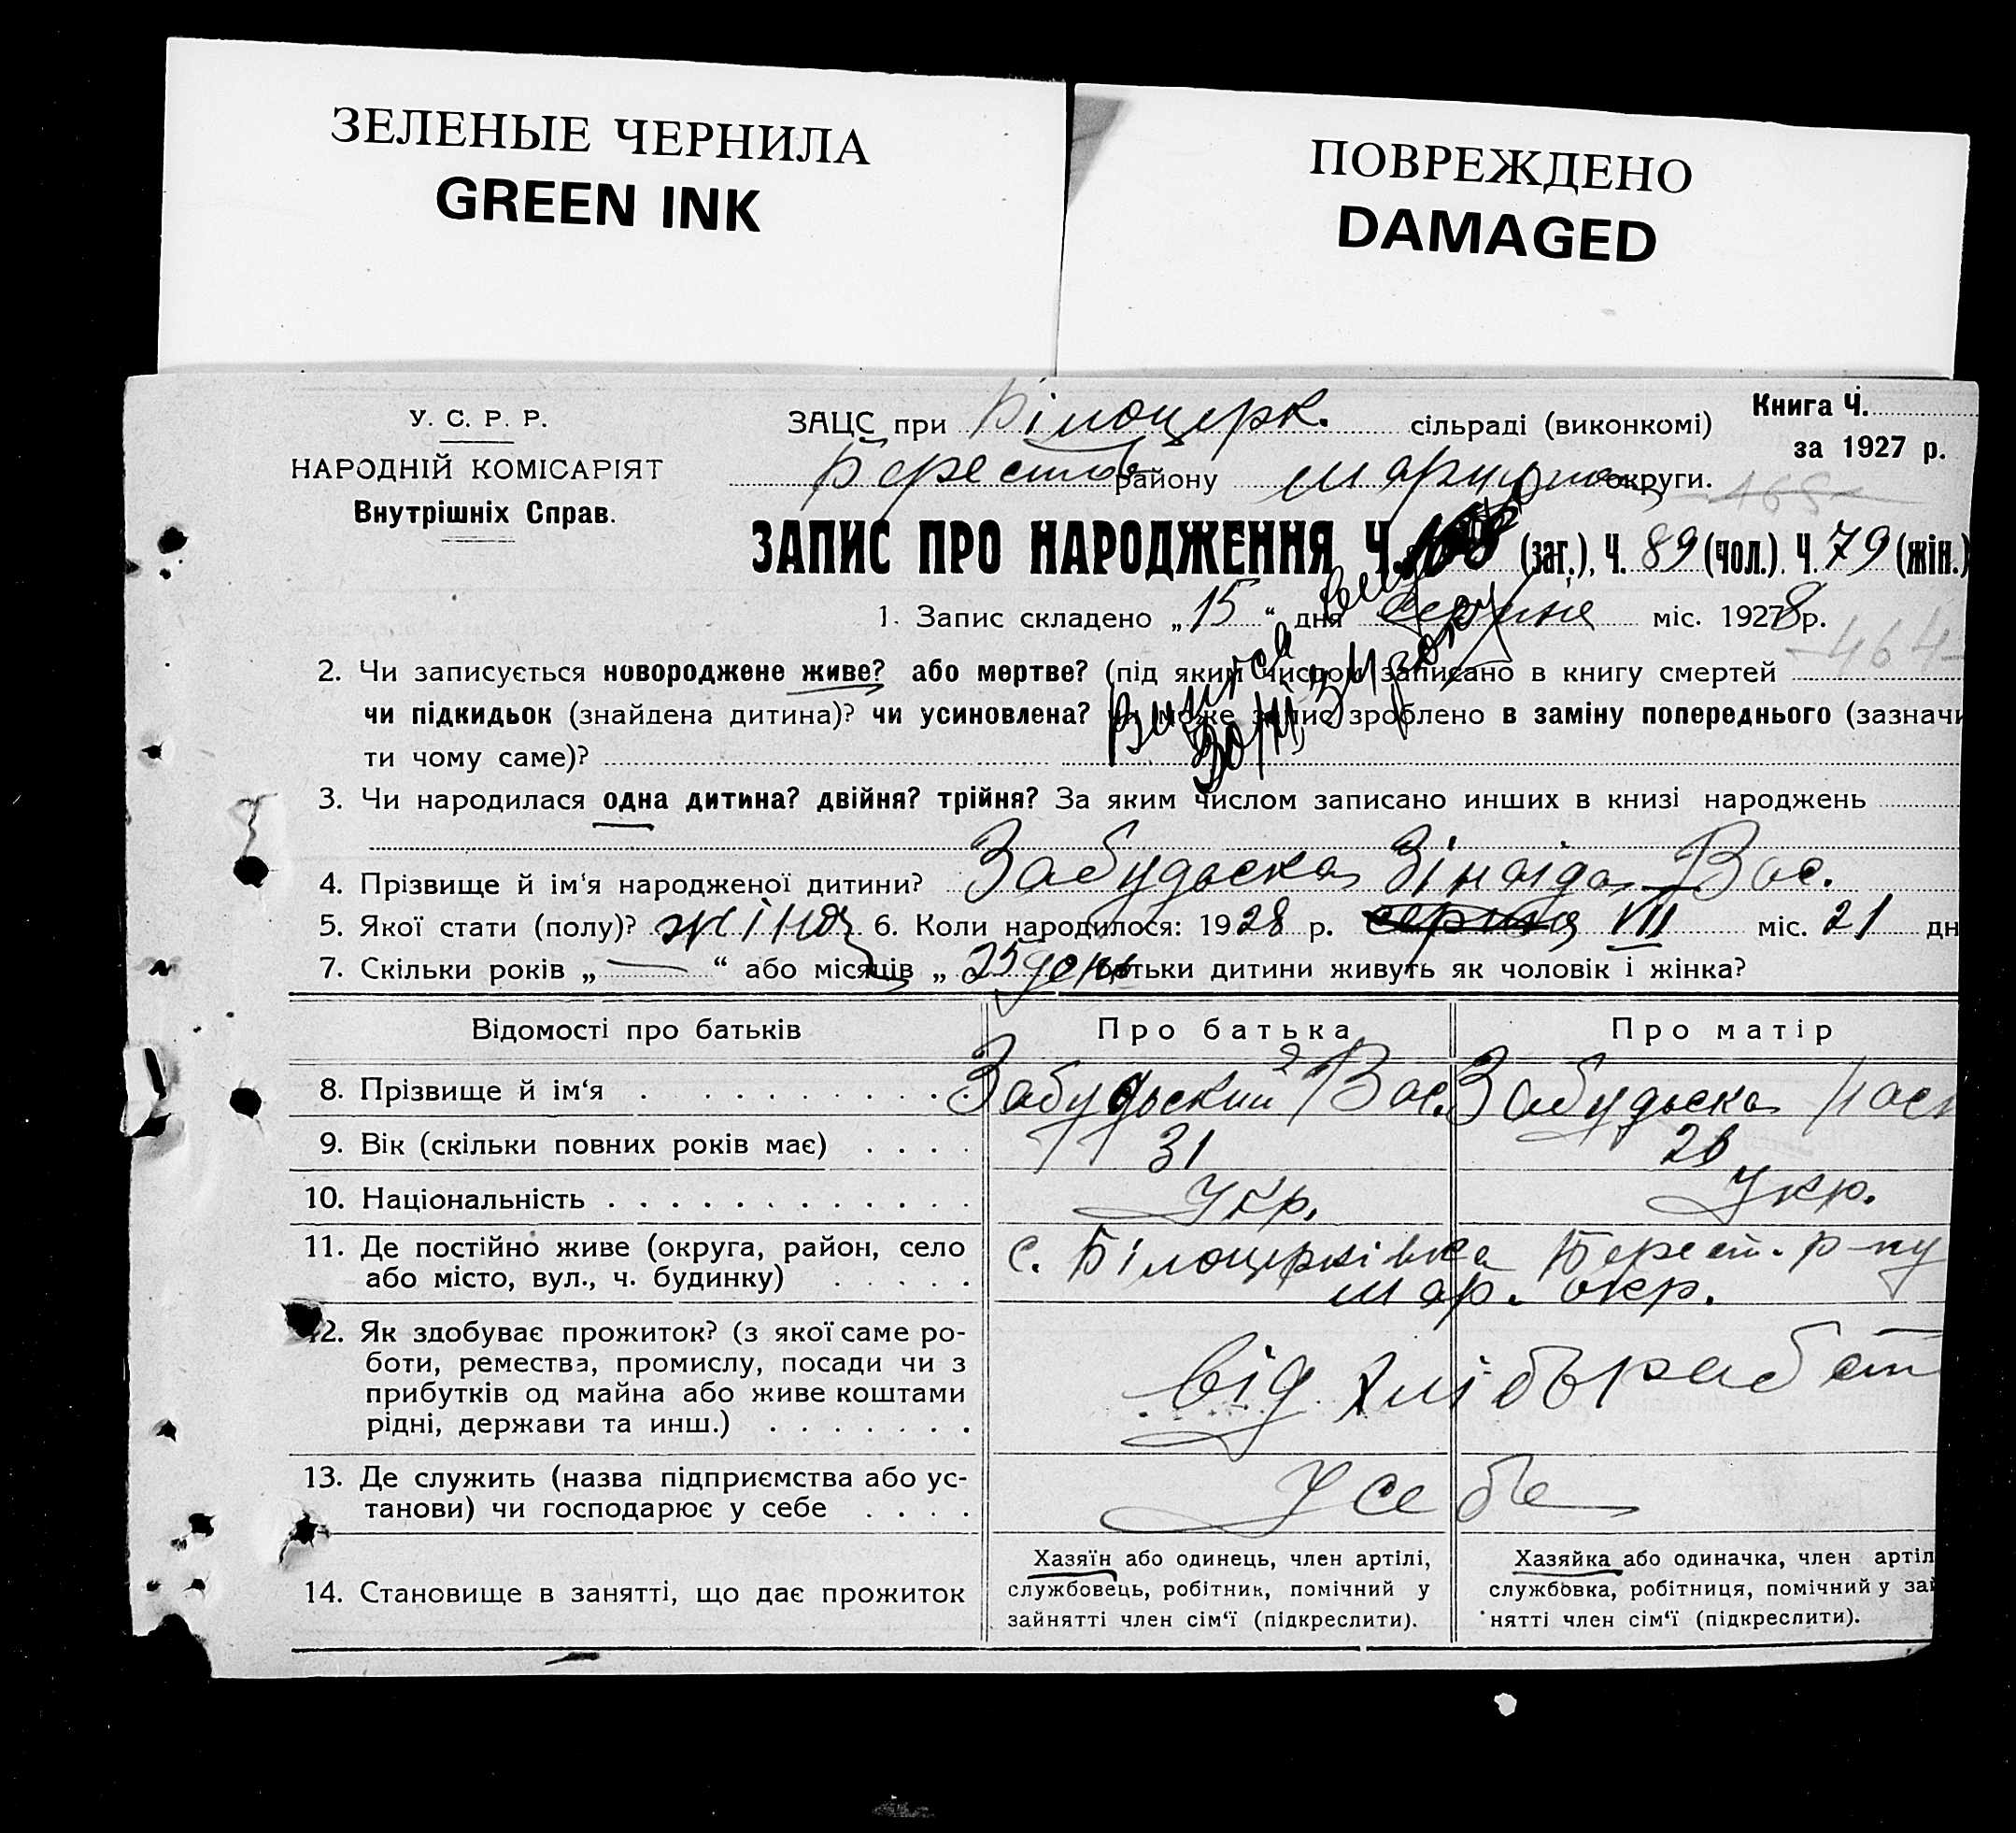 ЗЕЛЕНЫЕ ЧЕРНИЛА
GREEN INK
ПОВРЕЖДЕНО
DAMAGED
У. С. Р. Р.
НАРОДНІЙ КОМІСАРІЯТ
Внутрішніх Справ.
Книга Ч.
за 1927 р.
ЗАЦС при Білоцерк. сільраді (виконкомі)
Берестов району округи.
ЗАПИС ПРО НАРОДЖЕННЯ Ч. (заг.), Ч. 89 (чол.). Ч. 79 (жін.)
1. Запис складено „ 15 “ дня серпня міс. 1928 р.
464
2. Чи записується новороджене живе? або мертве? (під яким числом записано в книгу смертей
чи підкидьок (знайдена дитина)? чи усиновлена? може запис зроблено в заміну попереднього (зазначи
ти чому саме)?
3. Чи народилася одна дитина? двійня? трійня? За яким числом записано инших в книзі народжень
4. Прізвище й ім‘я народженої дитини? Забудьска Зінаіда Вас.
5. Якої стати (полу)? жіноч 6. Коли народилося: 1928 р. серпня VII міс. 21 дн
7. Скільки років „ — “ або місяців „ 25 день батьки дитини живуть як чоловік і жінка?
Відомості про батьків Про батька Про матір
8. Прізвище й ім‘я Забудьский Вас. Забудьска Наст
9. Вік (скільки повних років має) 31 28
10. Національність Укр. Укр.
11. Де постійно живе (округа, район, село с. Білоцерківка Берест. р-ну
або місто, вул., ч. будинку) Мар. окр.
12. Як здобуває прожиток? (з якої саме ро-
боти, ремества, промислу, посади чи з
прибутків од майна або живе коштами
рідні, держави та инш.) від
13. Де служить (назва підприємства або ус-
танови) чи господарює у себе У себе
14. Становище в занятті, що дає прожиток
Хазяїн або одинець, член артілі,
службовець, робітник, помічний у
зайнятті член сім‘ї (підкреслити).
Хазяйка або одиначка, член артіл
службовка, робітниця, помічний у зай
нятті член сім‘ї (підкреслити).